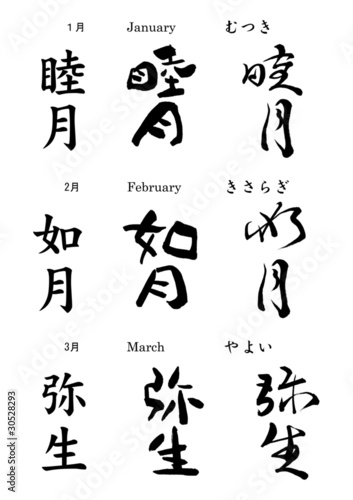 1月 January むつき
睦月 睦月 睦月
2月 February きさらぎ
如月 如月 如月
3月 March やよい
弥生 弥生 弥生
Adobe Stock | #30528293